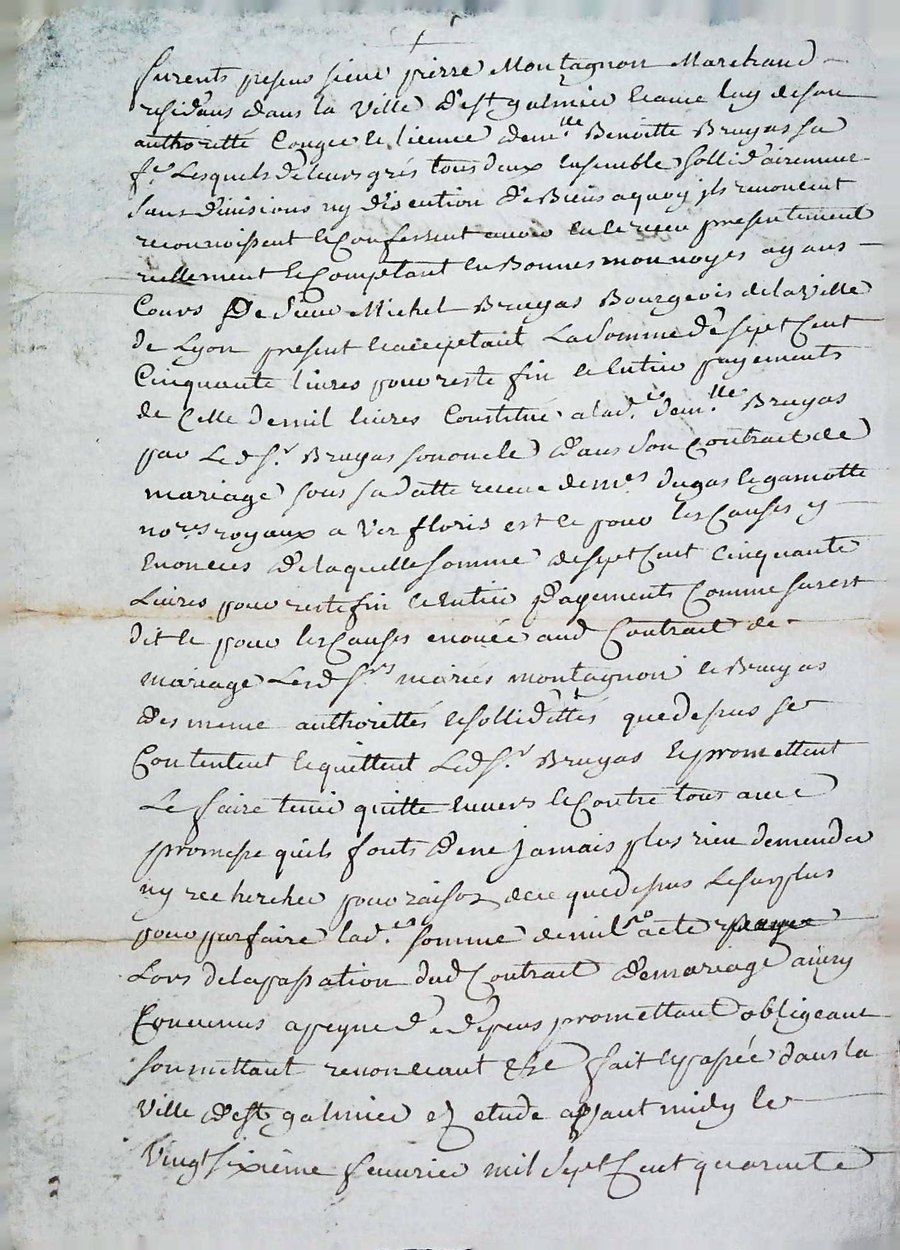 furents presens sieur pierre Montagnon Marchand
residans dans la Ville d'est galmier et avec luy de son
authoritté Congée et licence dem.lle Benoitte Bruyas sa
f.e Lesquels de leurs grés tous deux ensemble sollidairement
sans divisions ny discution de Biens aquoy jls renoncent
reconnoissent et Confessent avoir eu et receu presentement
réellement et Comptant en Bonnes monnoyes ayans
Cours De Sieur Michel Bruyas Bourgeois de la Ville
de Lyon present et acceptant La Somme de sept Cent
Cinquante livres pour reste fin et entier payements
de Celle de mil livres Constitué a lad.e dem.lle Bruyas
par Led Sr. Bruyas son oncle dans Son Contrait de
mariage sous sa datte receu de mes dugas et gamotte
nores royaux a Ver floris est ce pour les Causes y
Enoncées de laquelle somme de sept Cent Cinquante
Livres pour reste fin et entier payements Comme sus est
dit et pour les Causes enoncée aud Contrait de
mariage Lesd Srs mariés montagnon et Bruyas
des meme authorittés et sollidittés que depus se
Contentent et quittent Led Sr. Bruyas et promettent
Le faire tenir quitte envers et Contre tous avec
promesse quils fonts de ne jamais plus rien demender
ny rechercher pour raison de ce que depus Le surplus
pour parfaire lad.e somme de mil acte
Lors de la passation dud Contrait de mariage ainsy
Convenus a peyne de depens promettant obligeant
soumettant renonceant &c fait et passée dans la
Ville d'est galmier ez etude avant midy le
Vingt sixiéme fevrier mil Sept Cent quarante